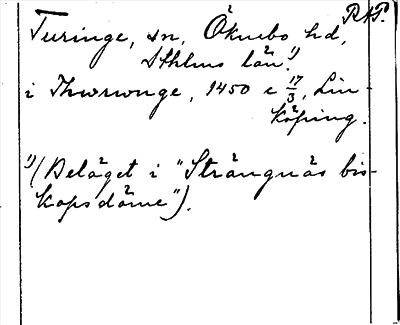 RAP.
Turinge, sn, Öknebo hd,
Sthlms län.¹)
i Thwrwnge, 1450 c 17/3, Lin-
köping.
¹) (Beläget i "Strängnäs bis-
kopsdöme").